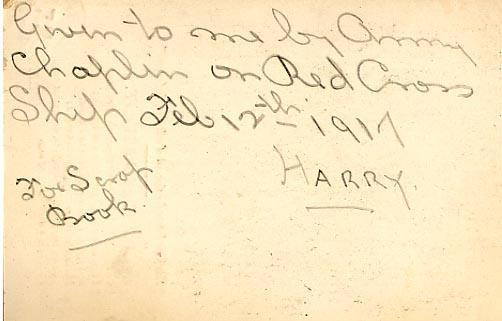 Given to me by Army
Chaplin on Red Cross
Ship Feb 12th 1917
HARRY.
For Scrap
Book